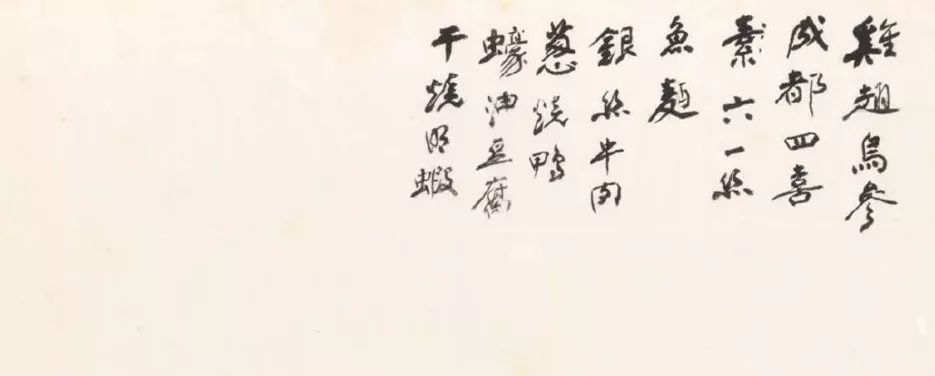 雞翅烏參
成都四喜
素六一絲
魚麵
銀絲牛肉
葱燒鴨
蠔油豆腐
干燒明蝦